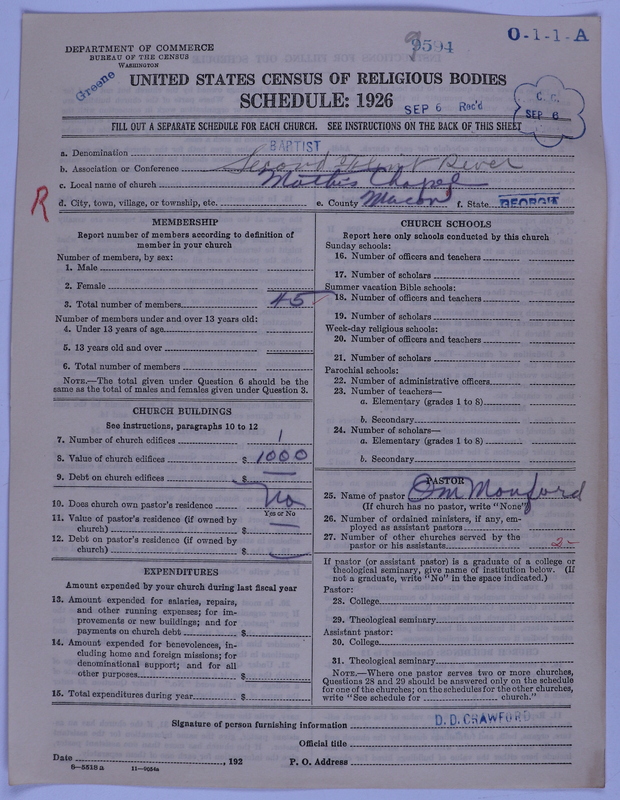 9594
O-1-1-A
DEPARTMENT OF COMMERCE
BUREAU OF THE CENSUS
WASHINGTON
Greene
UNITED STATES CENSUS OF RELIGIOUS BODIES
SCHEDULE: 1926
SEP 6 Rec'd
C. C.
SEP 6
FILL OUT A SEPARATE SCHEDULE FOR EACH CHURCH. SEE INSTRUCTIONS ON THE BACK OF THIS SHEET
a. Denomination BAPTIST
b. Association or Conference Second Flint River
c. Local name of church Mathis Chapel
R
d. City, town, village, or township, etc. e. County Macon f. State GEORGIA
MEMBERSHIP
Report number of members according to definition of
member in your church
Number of members, by sex:
1. Male
2. Female
3. Total number of members 45
Number of members under and over 13 years old:
4. Under 13 years of age
5. 13 years old and over
6. Total number of members
NOTE.—The total given under Question 6 should be the
same as the total of males and females given under Question 3.
CHURCH BUILDINGS
See instructions, paragraphs 10 to 12
7. Number of church edifices 1
8. Value of church edifices $ 1000
9. Debt on church edifices $
10. Does church own pastor's residence No
Yes or No
11. Value of pastor's residence (if owned by
church) $
12. Debt on pastor's residence (if owned by
church) $
EXPENDITURES
Amount expended by your church during last fiscal year
13. Amount expended for salaries, repairs,
and other running expenses; for im-
provements or new buildings; and for
payments on church debt $
14. Amount expended for benevolences, in-
cluding home and foreign missions; for
denominational support; and for all
other purposes $
15. Total expenditures during year $
CHURCH SCHOOLS
Report here only schools conducted by this church
Sunday schools:
16. Number of officers and teachers
17. Number of scholars
Summer vacation Bible schools:
18. Number of officers and teachers
19. Number of scholars
Week-day religious schools:
20. Number of officers and teachers
21. Number of scholars
Parochial schools:
22. Number of administrative officers
23. Number of teachers—
a. Elementary (grades 1 to 8)
b. Secondary
24. Number of scholars—
a. Elementary (grades 1 to 8)
b. Secondary
PASTOR
25. Name of pastor Monford
(If church has no pastor, write "None")
26. Number of ordained ministers, if any, em-
ployed as assistant pastors
27. Number of other churches served by the
pastor or his assistants 2
If pastor (or assistant pastor) is a graduate of a college or
theological seminary, give name of institution below. (If
not a graduate, write "No" in the space indicated.)
Pastor:
28. College
29. Theological seminary
Assistant pastor:
30. College
31. Theological seminary
NOTE.—Where one pastor serves two or more churches,
Questions 28 and 29 should be answered only on the schedule
for one of the churches; on the schedules for the other churches,
write "See schedule for church."
Signature of person furnishing information D. D. CRAWFORD
Official title
Date , 192 P. O. Address
8—5518 a 11—9054a